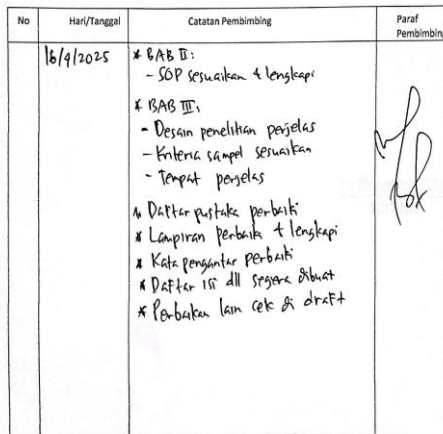 No Hari/Tanggal Catatan Pembimbing Paraf Pembimbing
16/9/2025
* BAB II:
- SOP sesuaikan + lengkapi
* BAB III:
- Desain penelitian perjelas
- Kriteria sampel sesuaikan
- Tempat perjelas
* Daftar pustaka perbaiki
* Lampiran perbaiki + lengkapi
* Kata pengantar perbaiki
* Daftar isi dll segera dibuat
* Perbaikan lain cek di draft